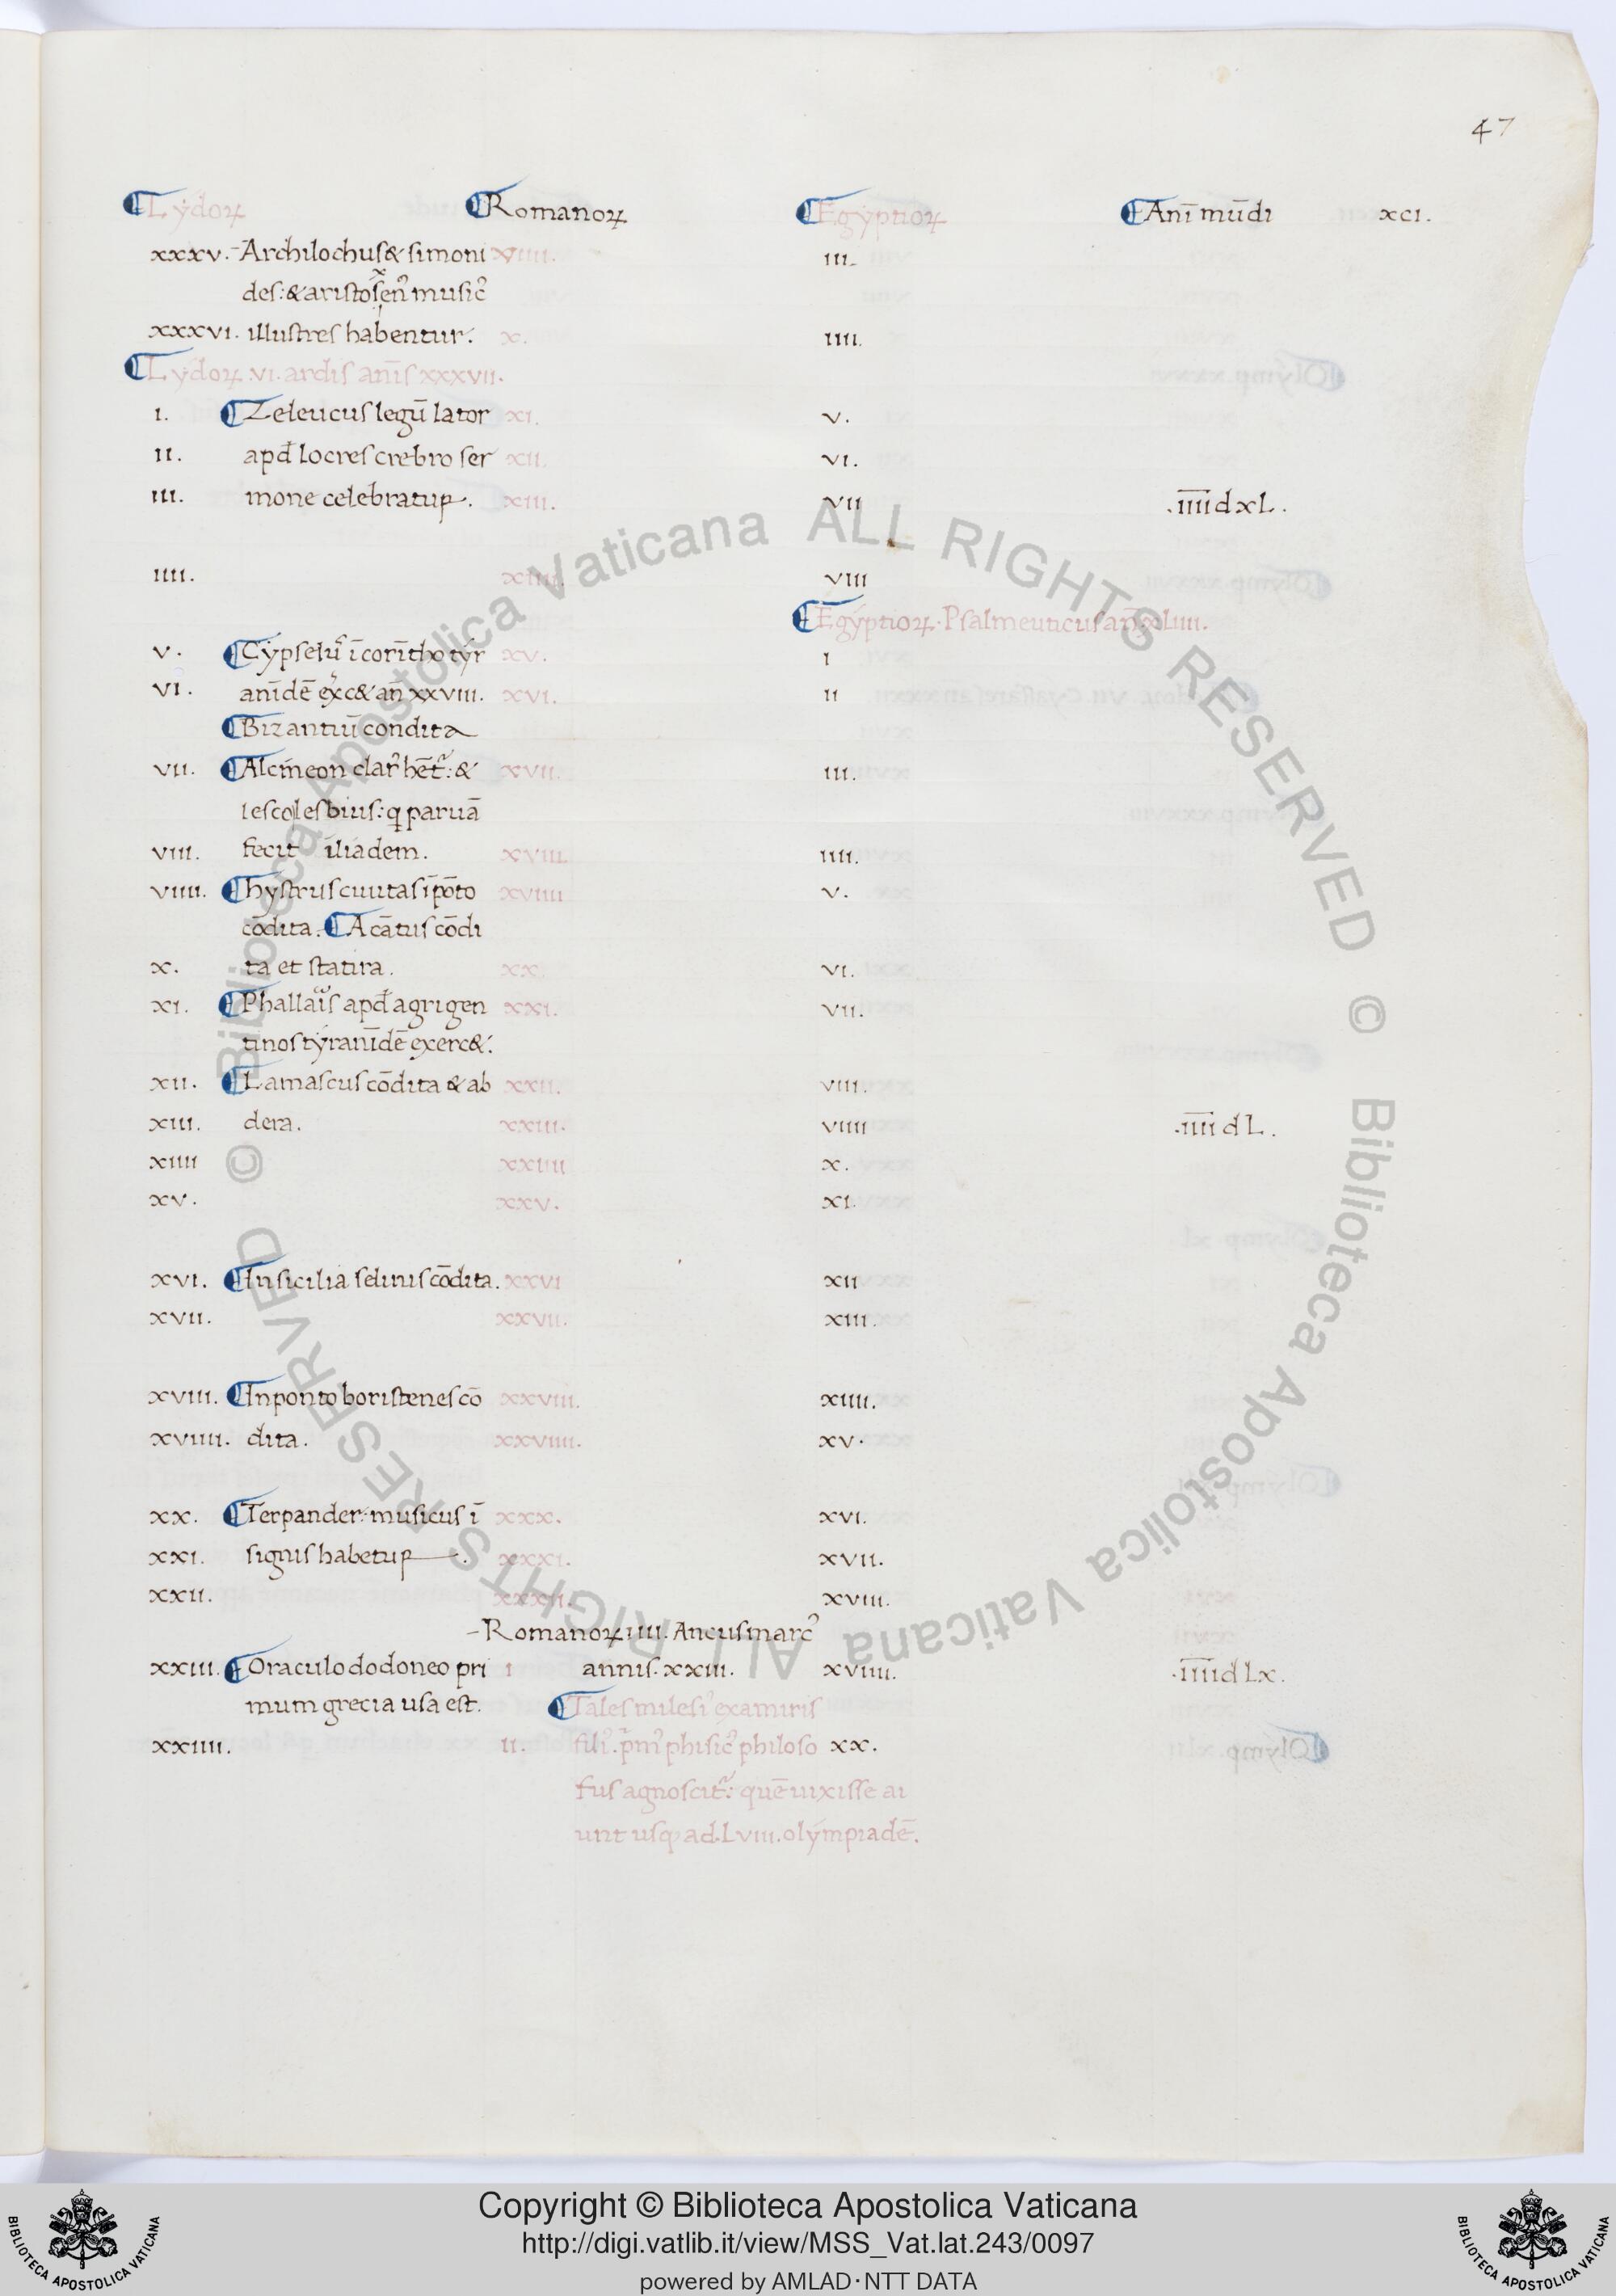 47
Lydoꝝ Romanoꝝ Egyptioꝝ Ani̅ mu̅di xci.
xxxv. Archilochus & simoni viiii. iii.
des: & aristosenꝰ musicꝰ
xxxvi. illustres habentur. x. iiii.
Lydoꝝ .vi. ardis ani̅s xxxvii.
i. Zeleucus legu̅ lator xi. v.
ii. apd̅ locres crebro ser xii. vi.
iii. mone celebratur. xiii. vii .i̅i̅i̅i̅ d xL.
iiii. xiiii. viii
Egyptioꝝ. Psalmeuticus an̅ xLiiii.
v. Cypselꝰ i̅ cori̅tho tyr xv. i
vi. ani̅de̅ exc& an̅ xxviii. xvi. ii
Bizantiu̅ condita
vii. Alcmeon clarꝰ he̅t: & xvii. iii.
lesco lesbius: q parua̅
viii. fecit iliadem. xviii. iiii.
viiii. hystrus ciuitas i̅ po̅to xviiii v.
co̅dita. Aca̅tus co̅di
x. ta et statira. xx vi.
xi. Phallais apd̅ agrigen xxi. vii.
tinos tyrani̅de̅ exerc&.
xii. Lamascus co̅dita & ab xxii. viii.
xiii. dera. xxiii. viiii .i̅i̅i̅i̅ d L.
xiiii xxiiii x.
xv. xxv. xi.
xvi. In sicilia selinis co̅dita. xxvi xii
xvii. xxvii. xiii.
xviii. In ponto boristenes co̅ xxviii. xiiii.
xviiii. dita. xxviiii. xv.
xx. Terpander: musicus i̅ xxx. xvi.
xxi. signis habetur. xxxi. xvii.
xxii. xxxii. xviii.
Romanoꝝ iiii. Ancus marcꝰ
xxiii. Oraculo dodoneo pri i annis. xxiii. xviiii. .i̅i̅i̅i̅ d Lx.
mum grecia usa est. Tales milesiꝰ examiris
xxiiii. ii. filiꝰ. pm̅ꝰ phisicꝰ philoso xx.
fus agnoscit: que̅ uixisse ai
unt usq ad. Lviii. olympiade̅.
Biblioteca Apostolica Vaticana ALL RIGHTS RESERVED ©
Biblioteca Apostolica Vaticana ALL RIGHTS RESERVED ©
Copyright © Biblioteca Apostolica Vaticana
http://digi.vatlib.it/view/MSS_Vat.lat.243/0097
powered by AMLAD · NTT DATA
BIBLIOTECA APOSTOLICA VATICANA
BIBLIOTECA APOSTOLICA VATICANA